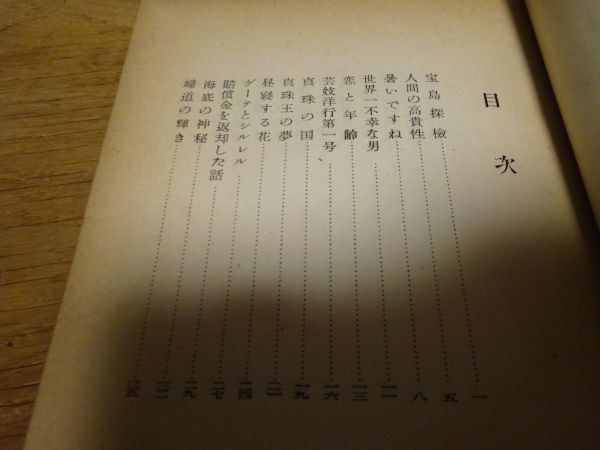 目次
宝島探檢 一
人間の高貴性 五
暑いですね 八
世界一不幸な男 一一
恋と年齢 一三
芸妓洋行第一号 一六
真珠の国 一九
真珠王の夢 二一
昼寝する花 二四
ゲーテとシルレル 二七
賠償金を返却した話 二九
海底の神秘 三一
婦道の輝き 三五